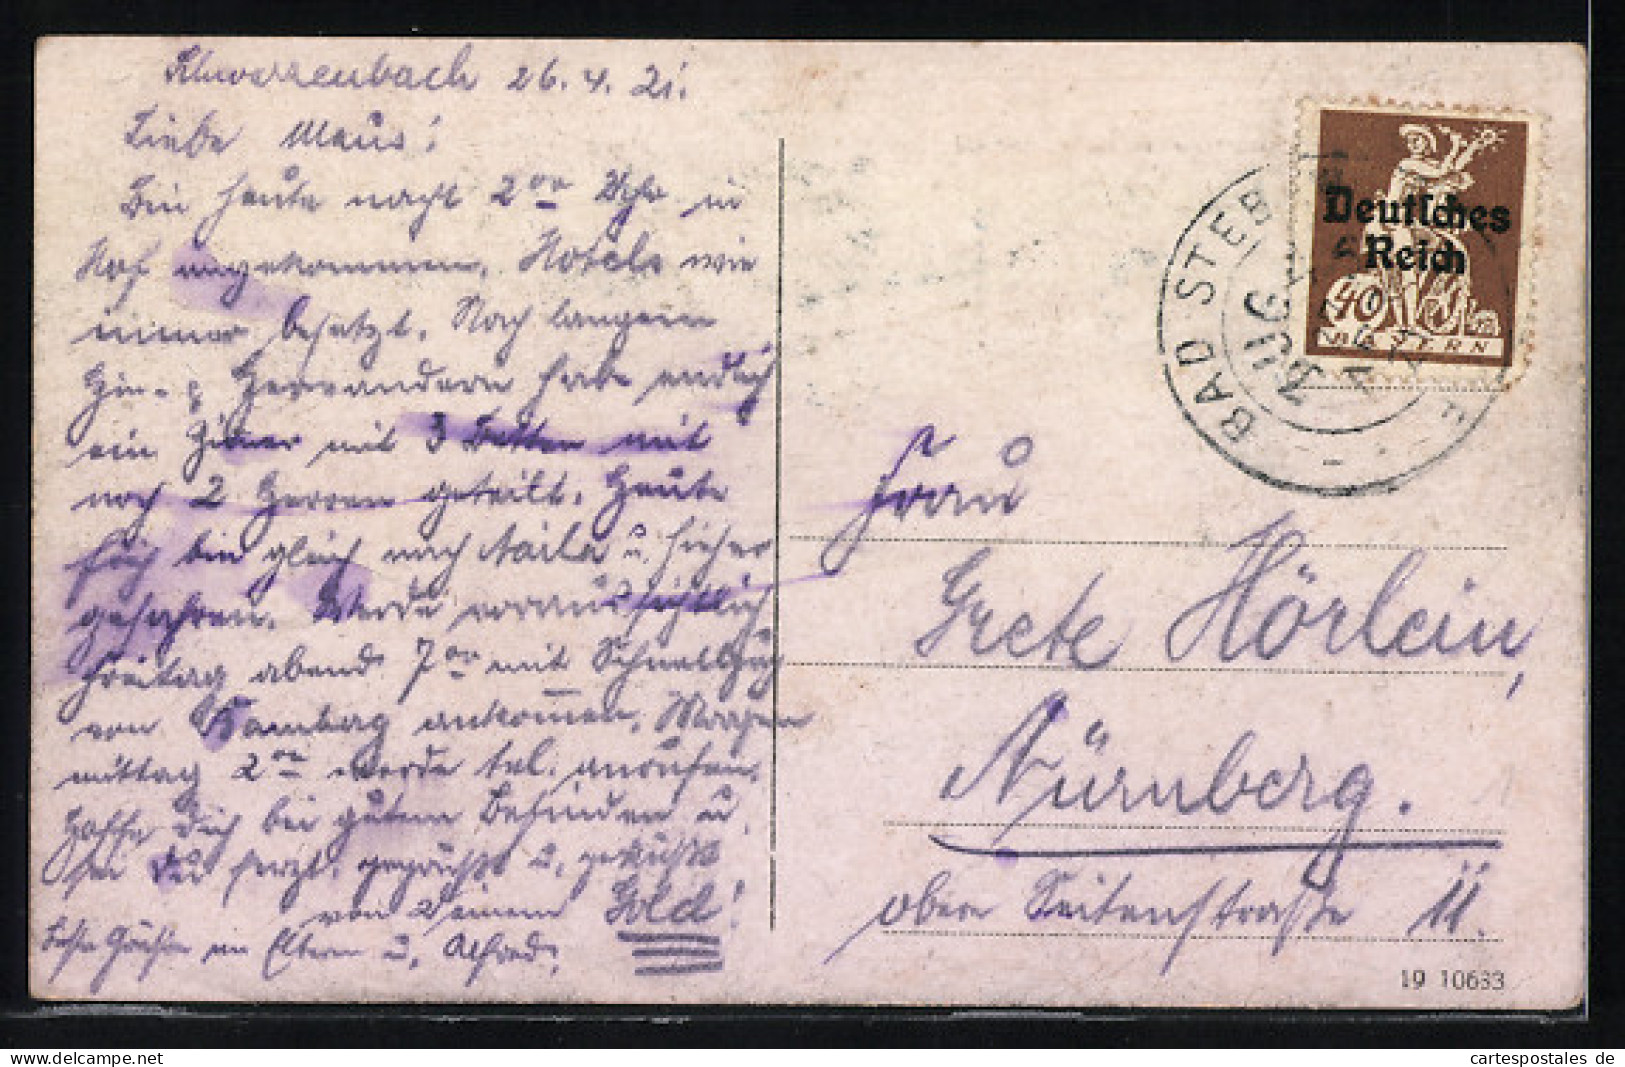 Schwarzenbach 26.4.21.
Liebe Maus!
Bin heute nacht 2 00 Uhr in
Hof angekommen. Hotels wie
immer besetzt. Nach langem
Hin- & Herwandern habe endlich
ein Zimer mit 3 Betten mit
noch 2 Herren geteilt. Heute
früh bin gleich nach Naila u. hieher
gefahren. Werde voraussichtlich
Freitag abend 7 00 mit Schnellzug
von Bamberg ankomen. Morgen
mittag 2 00 werde tel. anrufen.
Hoffe Dich bei gutem Befinden u.
sei Du herzl. gegrüßt u. geküßt
von Deinem Gold!
Beste Grüße an Eltern u. Alfred.
Deutsches
Reich
40
BAYERN
BAD STEB
ZUG
Frau
Grete Hörlein,
Nürnberg.
obere Seitenstraße 11.
19 10633
cartespostales de